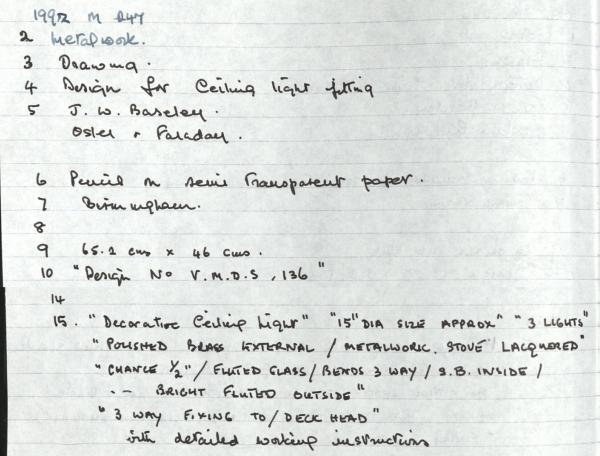 1992 M 247
2 Metalwork.
3 Drawing.
4 Design for Ceiling light fitting
5 J. W. Baseley.
Osler & Faraday.
6 Pencil on semi Transparent paper.
7 Birmingham.
8
9 65.2 cms x 46 cms.
10 "Design No V.M.D.S, 136"
14
15. "Decorative Ceiling Light" "15" DIA SIZE APPROX" "3 LIGHTS"
"POLISHED BRASS EXTERNAL / METALWORK. STOVE LACQUERED"
"CHANCE ½" / FLUTED GLASS / BENDS 3 WAY / S.B. INSIDE /
.. BRIGHT FLUTED OUTSIDE"
"3 WAY FIXING TO / DECK HEAD"
with detailed working instructions